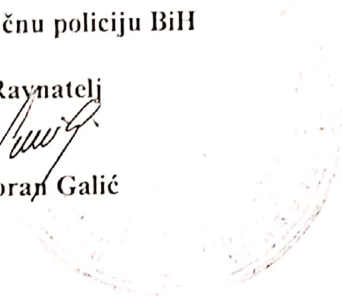 čnu policiju BiH
Ravnatelj
oran Galić